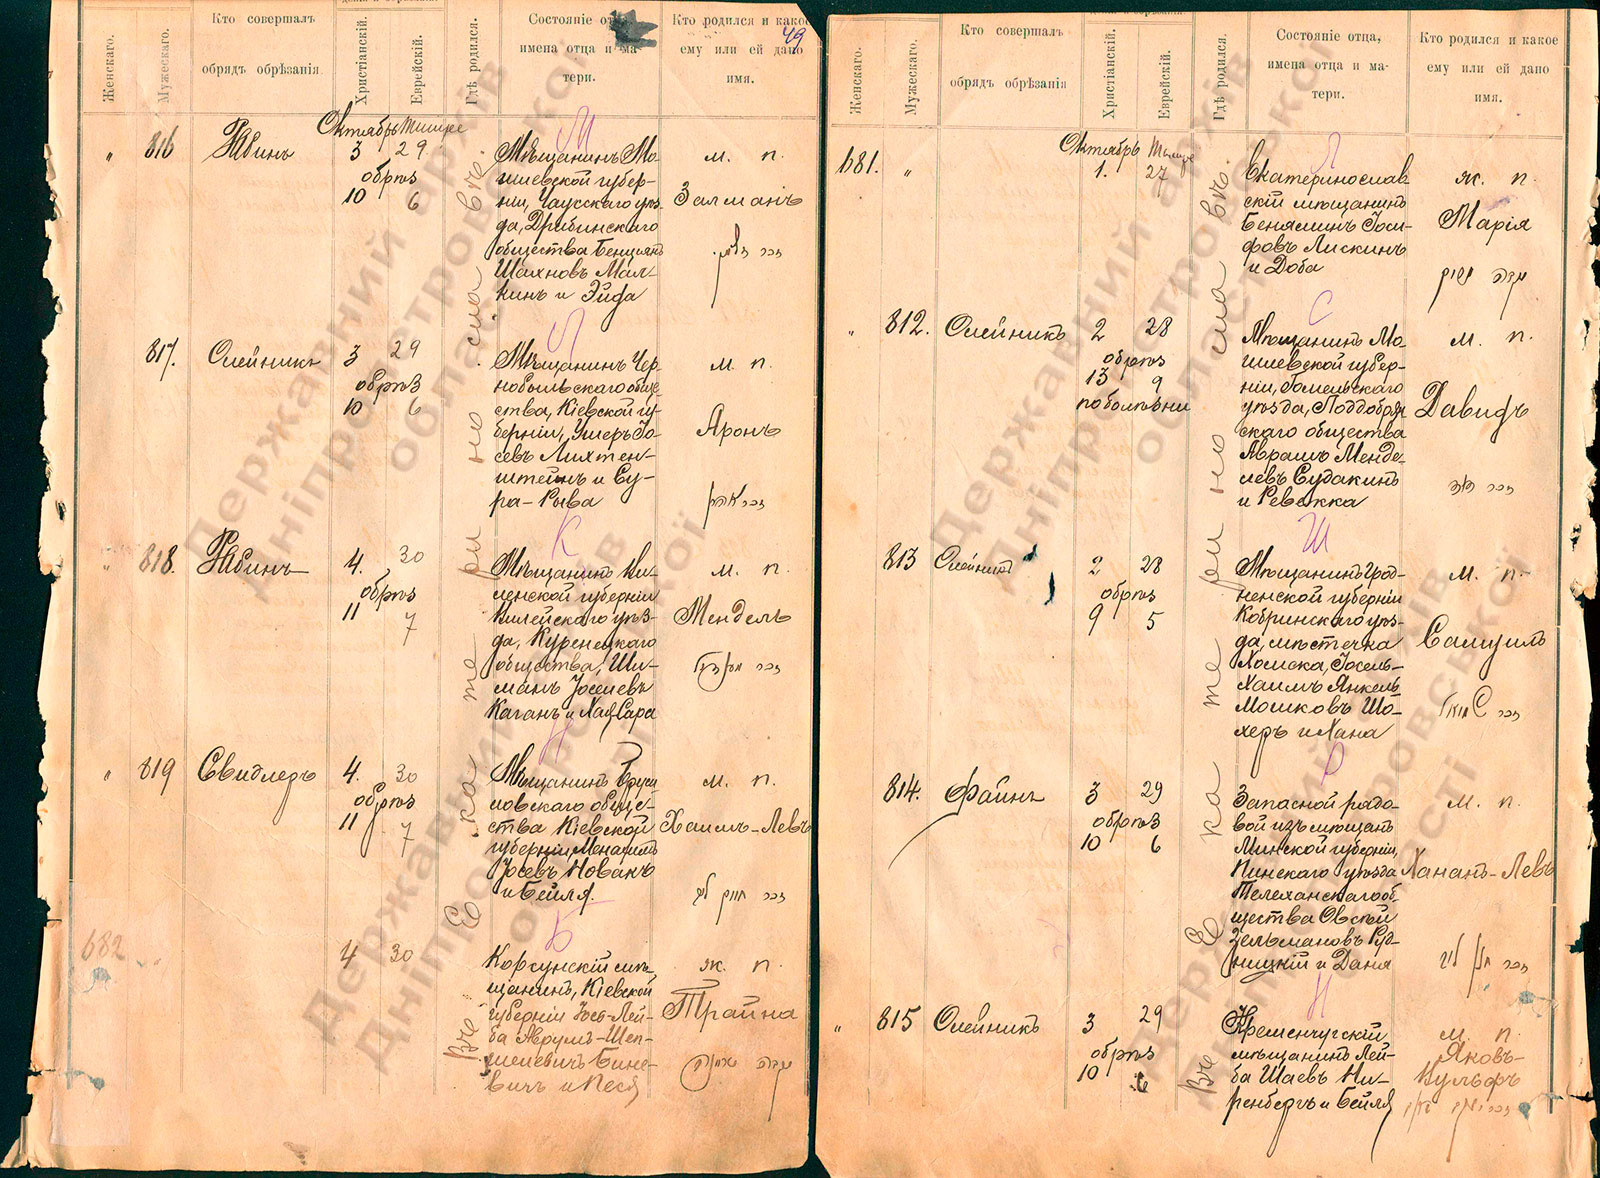 49
Женскаго.
Мужескаго.
Кто совершалъ
обрядъ обрѣзанія
Христіанскій.
Еврейскій.
Гдѣ родился.
Состояніе отца,
имена отца и ма-
тери.
Кто родился и какое
ему или ей дано
имя.
Октябрь Тишре
816
Рабинъ
3 29
обрѣз
10 6
М
Мѣщанинъ Мо-
гилевской губер-
ніи, Чаусскаго уѣз-
да, Дрибинскаго
общества Бенціянъ
Шахновъ Мал-
кинъ и Эйда
м. п.
Залманъ
817.
Олейникъ
3 29
обрѣз
10 6
Л
Мѣщанинъ Чер-
нобыльскаго обще-
ства, Кіевской гу-
берніи, Ушеръ Іо-
севъ Лихтен-
штейнъ и Су-
ра-Рыва
м. п.
Аронъ
818.
Рабинъ
4. 30
обрѣз
11 7
К
Мѣщанинъ Ви-
ленской губерніи
Вилейскаго уѣз-
да, Куренецкаго
общества, Ши-
манъ Іоселевъ
Каганъ и Хая-Сара
м. п.
Мендель
819
Свидлеръ
4. 30
обрѣз
11 7
Н
Мѣщанинъ Бруси
ловскаго общес-
тва Кіевской
губерніи, Менахимъ
Іосевъ Новакъ
и Бейля.
м. п.
Хаимъ-Левъ
682
4 30
Б
Корсунскій мѣ-
щанинъ, Кіевской
губерніи Іось-Лей-
ба Аврумъ-Шеп-
шелевичъ Бине-
вичъ и Песя
як. п.
Трайна
Въ Екатеринославѣ.
Державний архів
Дніпропетровської
області
Женскаго.
Мужескаго.
Кто совершалъ
обрядъ обрѣзанія
Христіанскій.
Еврейскій.
Гдѣ родился.
Состояніе отца,
имена отца и ма-
тери.
Кто родился и какое
ему или ей дано
имя.
Октябрь Тишре
681.
1. 27
Л
Екатеринослав-
скій мѣщанинъ
Беняминъ Іоси-
фовъ Лискинъ
и Доба
як. п.
Марія
812.
Олейникъ
2 28
обрѣз
13 9
по болѣзни
С
Мѣщанинъ Мо-
гилевской губер-
ніи, Гомельскаго
уѣзда, Поддобрян
скаго общества
Аврамъ Менде-
левъ Судакинъ
и Ревекка
м. п.
Давидъ
813
Олейникъ
2 28
обрѣз
9 5
Ш
Мѣщанинъ Грод-
ненской губерніи
Кобринскаго уѣз-
да, мѣстечка
Хомска, Іосель-
Хаимъ Янкель-
Мошковъ Шо-
херъ и Хана
м. п.
Самуилъ
814.
Файнъ
3 29
обрѣз
10 6
Р
Запасной рядо-
вой изъ мѣщанъ
Минской губерніи,
Пинскаго уѣзда
Телеханскаго об-
щества Овсей
Зельмановъ Руд-
ницкій и Даня
м. п.
Хананъ-Левъ
815
Олейникъ
3 29
обрѣз
10 6
Н
Кременчугскій
мѣщанинъ Лей-
ба Шаевъ Ни-
ренбергъ и Бейля
м. п.
Яковъ-
Вульфъ
Въ Екатеринославѣ.
Державний архів
Дніпропетровської
області